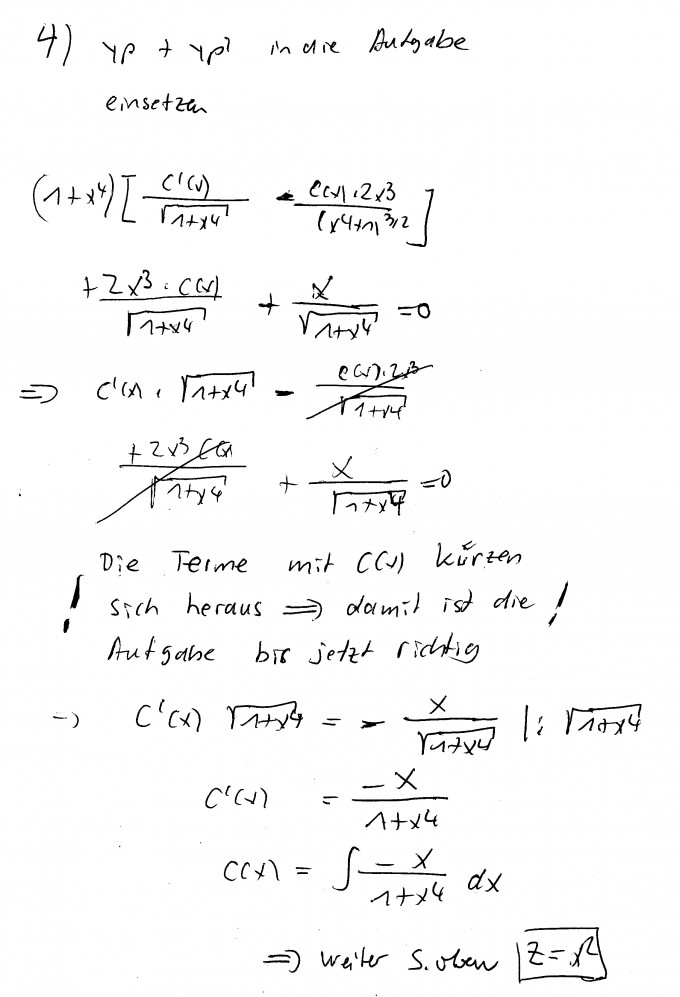 4) yp + yp' in die Aufgabe
einsetzen
(1+x⁴) [ C'(x)/√(1+x⁴) - C(x)·2x³/(x⁴+1)^(3/2) ]
+2x³·C(x)/√(1+x⁴) + x/√(1+x⁴) =0
=> C'(x) · √(1+x⁴) - C(x)·2x³/√(1+x⁴)
+2x³ C(x)/√(1+x⁴) + x/√(1+x⁴) =0
Die Terme mit C(x) kürzen
! sich heraus => damit ist die !
Aufgabe bis jetzt richtig
-> C'(x) √(1+x⁴) = - x/√(1+x⁴) |: √(1+x⁴)
C'(x) = -x/(1+x⁴)
C(x) = ∫ -x/(1+x⁴) dx
=> weiter s. oben z=x²